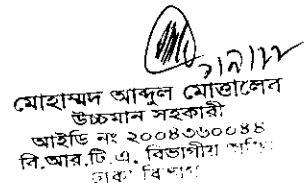 মোহাম্মদ আব্দুল মোত্তালেব
উচ্চমান সহকারী
আইডি নং ২০০৪৩৬০০৪৪
বি.আর.টি.এ. বিভাগীয়
ঢাকা বিভাগ